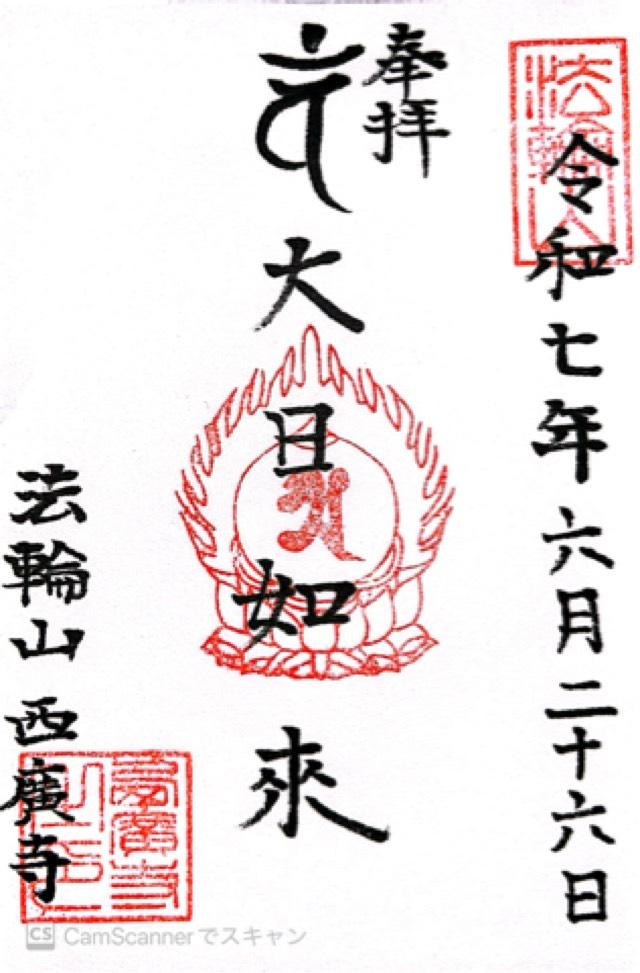 令和七年六月二十六日
奉拝
大日如來
法輪山西廣寺
法輪山
CamScannerでスキャン